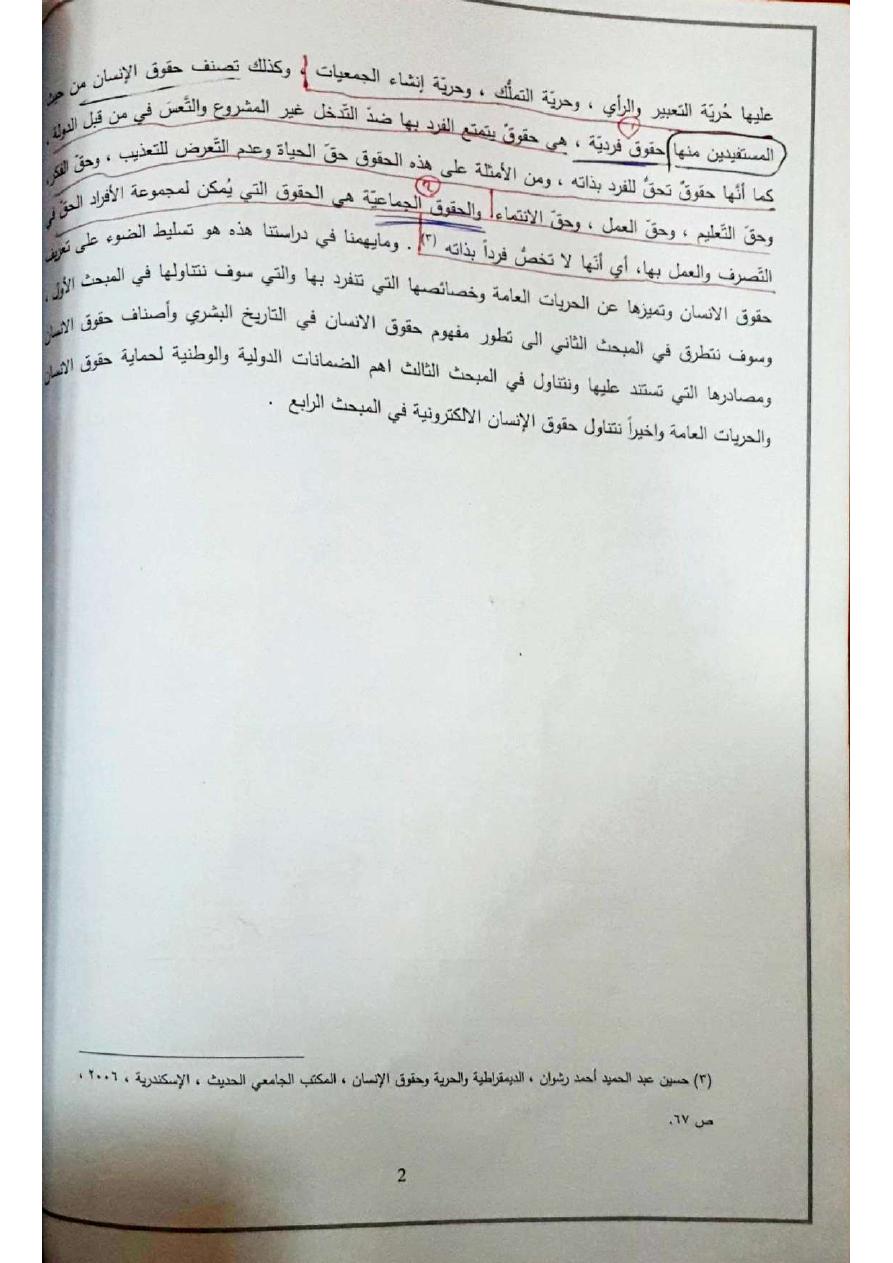 عليها حُريّة التعبير والرأي ، وحريّة التملُّك ، وحريّة إنشاء الجمعيات ، وكذلك تصنف حقوق الإنسان من حيث
١
المستفيدين منها حقوق فرديّة ، هي حقوقٌ يتمتع الفرد بها ضدّ التّدخل غير المشروع والتَّعسَ في من قبل الدولة ،
كما أنّها حقوقٌ تحقُّ للفرد بذاته ، ومن الأمثلة على هذه الحقوق حقّ الحياة وعدم التّعرض للتعذيب ، وحقّ الفكر،
٢
وحقّ التّعليم ، وحقّ العمل ، وحقّ الانتماء والحقوق الجماعيّة هي الحقوق التي يُمكن لمجموعة الأفراد الحقّ في
التّصرف والعمل بها، أي أنّها لا تخصُّ فرداً بذاته (٣) . ومايهمنا في دراستنا هذه هو تسليط الضوء على تعريف
حقوق الانسان وتميزها عن الحريات العامة وخصائصها التي تتفرد بها والتي سوف نتناولها في المبحث الأول ،
وسوف نتطرق في المبحث الثاني الى تطور مفهوم حقوق الانسان في التاريخ البشري وأصناف حقوق الانسان
ومصادرها التي تستند عليها ونتناول في المبحث الثالث اهم الضمانات الدولية والوطنية لحماية حقوق الانسان
والحريات العامة واخيراً نتناول حقوق الإنسان الالكترونية في المبحث الرابع .
(٣) حسين عبد الحميد أحمد رشوان ، الديمقراطية والحرية وحقوق الإنسان ، المكتب الجامعي الحديث ، الإسكندرية ، ٢٠٠٦ ،
ص ٦٧.
2